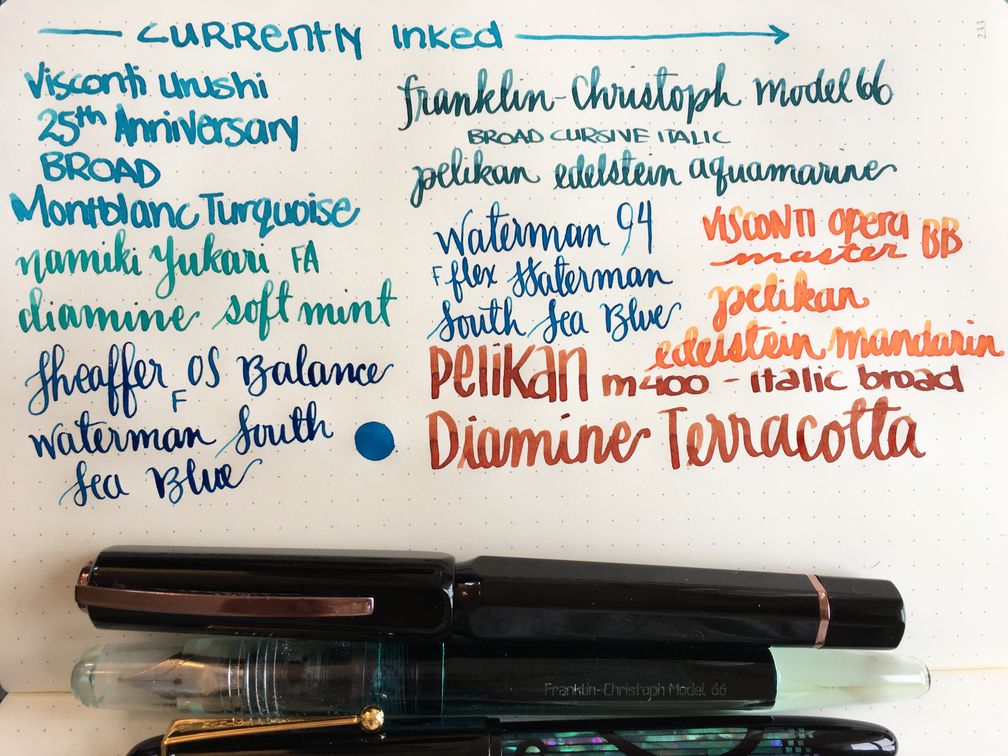 Currently Inked
Visconti Urushi
25th Anniversary
BROAD
Montblanc Turquoise
namiki Yukari FA
diamine soft mint
Sheaffer OS Balance
F
Waterman South
Sea Blue
Franklin-Christoph model 66
BROAD CURSIVE ITALIC
pelikan edelstein aquamarine
Waterman 94
F flex Waterman
South Sea Blue
VISCONTI Opera
master BB
pelikan
edelstein mandarin
Pelikan m400 - italic broad
Diamine Terracotta
233
Franklin-Christoph Model 66